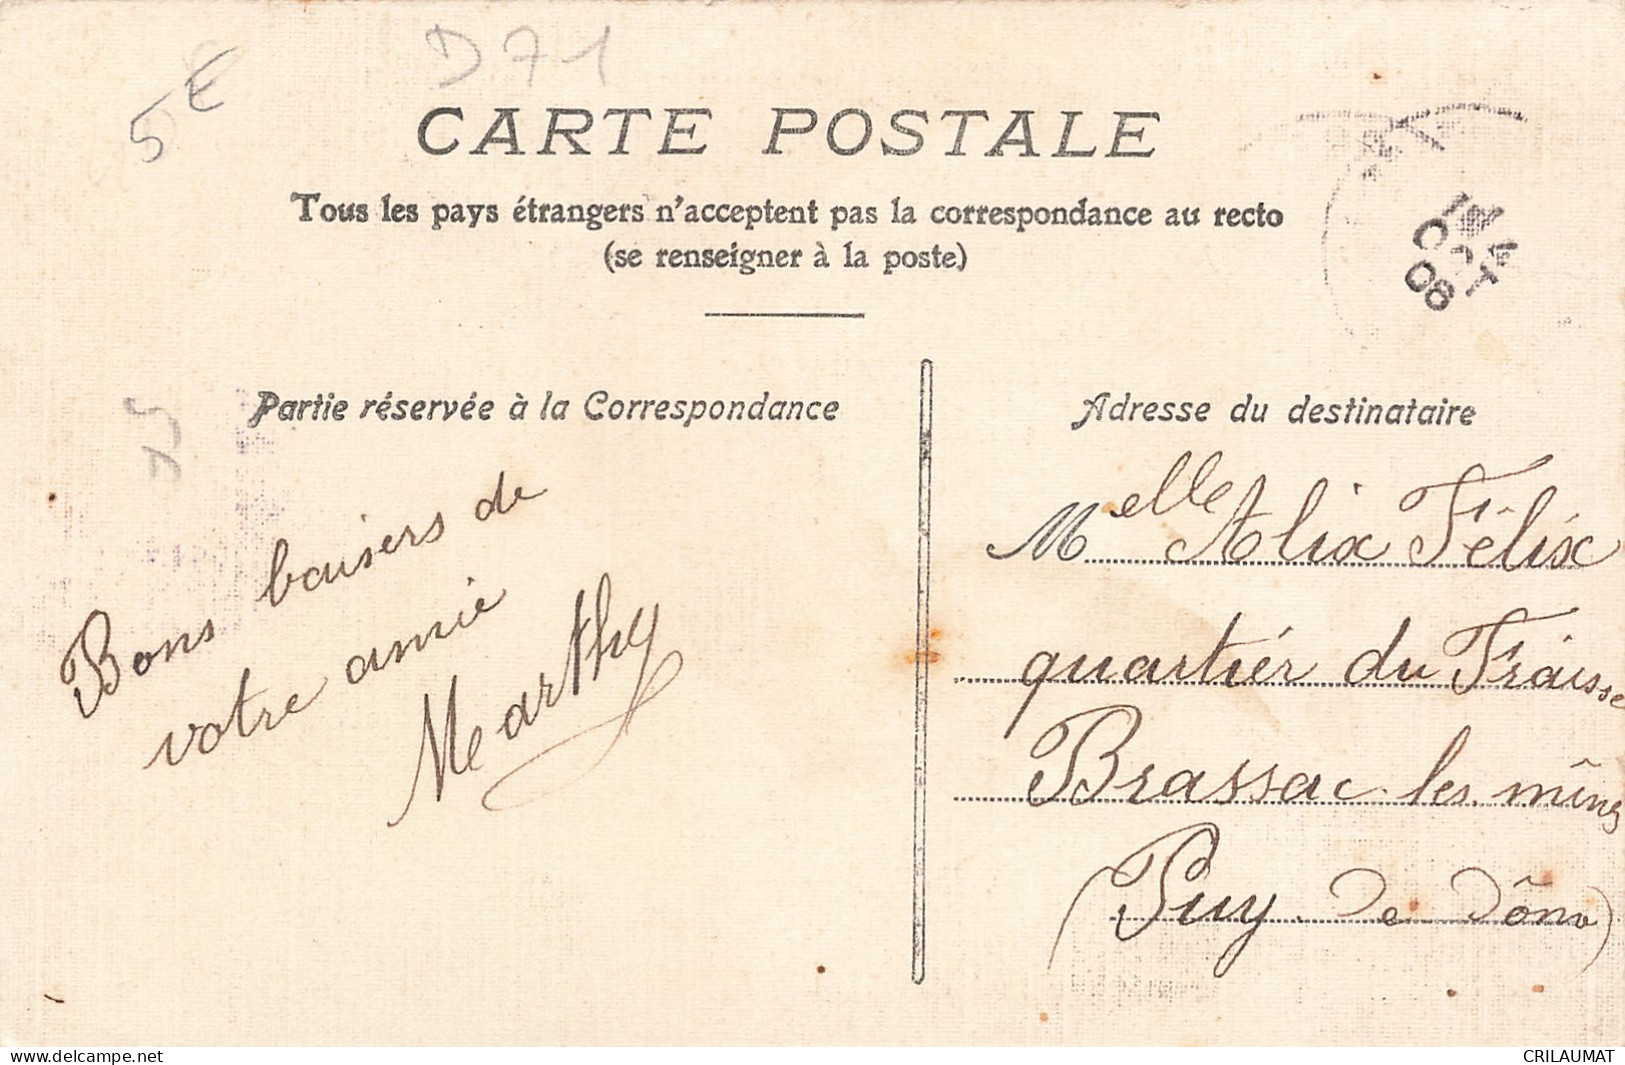 D71
5E
CARTE POSTALE
Tous les pays étrangers n'acceptent pas la correspondance au recto
(se renseigner à la poste)
OCT
08
Partie réservée à la Correspondance
Adresse du destinataire
Bons baisers de
votre amie
Marthy
Melle Alix Félix
quartier du Fraisse
Brassac les mines
(Puy de Dôme)
www.delcampe.net
CRILAUMAT